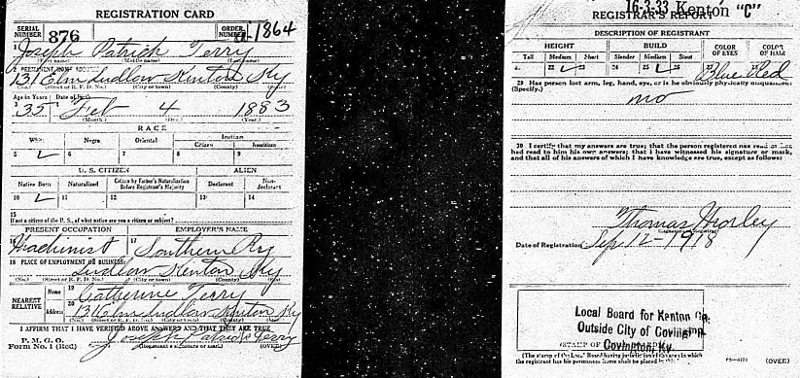 REGISTRATION CARD
SERIAL NUMBER 876 ORDER NUMBER 1864
Joseph Patrick Terry
(First name) (Middle name) (Last name)
PERMANENT HOME ADDRESS:
131 Elm Ludlow Kenton Ky
(No.) (Street or R. F. D. No.) (City or town) (County) (State)
Age in Years Date of Birth
35 Feb 4 1883
(Month.) (Day.) (Year.)
RACE
White Negro Oriental Indian
Citizen Noncitizen
5 6 7 8 9
U. S. CITIZEN ALIEN
Native Born Naturalized Citizen by Father's Naturalization Before Registrant's Majority Declarant Non-declarant
10 11 12 13 14
15
If not a citizen of the U. S., of what nation are you a citizen or subject?
PRESENT OCCUPATION EMPLOYER'S NAME
16 Machinist 17 Southern Ry
18 PLACE OF EMPLOYMENT OR BUSINESS:
Ludlow Kenton Ky
(No.) (Street or R. F. D. No.) (City or town) (County) (State)
NEAREST RELATIVE Name 19 Catherine Terry
Address 20 131 Elm Ludlow Kenton Ky
I AFFIRM THAT I HAVE VERIFIED ABOVE ANSWERS AND THAT THEY ARE TRUE
P. M. G. O.
Form No. 1 (Red) Joseph Patrick Terry
(Registrant's signature or mark) (OVER)
16-3-33 Kenton "C"
REGISTRAR'S REPORT
DESCRIPTION OF REGISTRANT
HEIGHT BUILD COLOR OF EYES COLOR OF HAIR
Tall Medium Short Slender Medium Stout
21 22 23 24 25 26 27 Blue 28 Red
29 Has person lost arm, leg, hand, eye, or is he obviously physically disqualified?
(Specify.)
no
30 I certify that my answers are true; that the person registered has read or has
had read to him his own answers; that I have witnessed his signature or mark,
and that all of his answers of which I have knowledge are true, except as follows:
Thomas Morley
Date of Registration Sep. 12-1918
Local Board for Kenton Co.
Outside City of Covington.
Covington, Ky.
(STAMP OF LOCAL BOARD)
(The stamp of the Local Board having jurisdiction of the area in which
the registrant has his permanent home shall be placed in this box.)
(OVER)